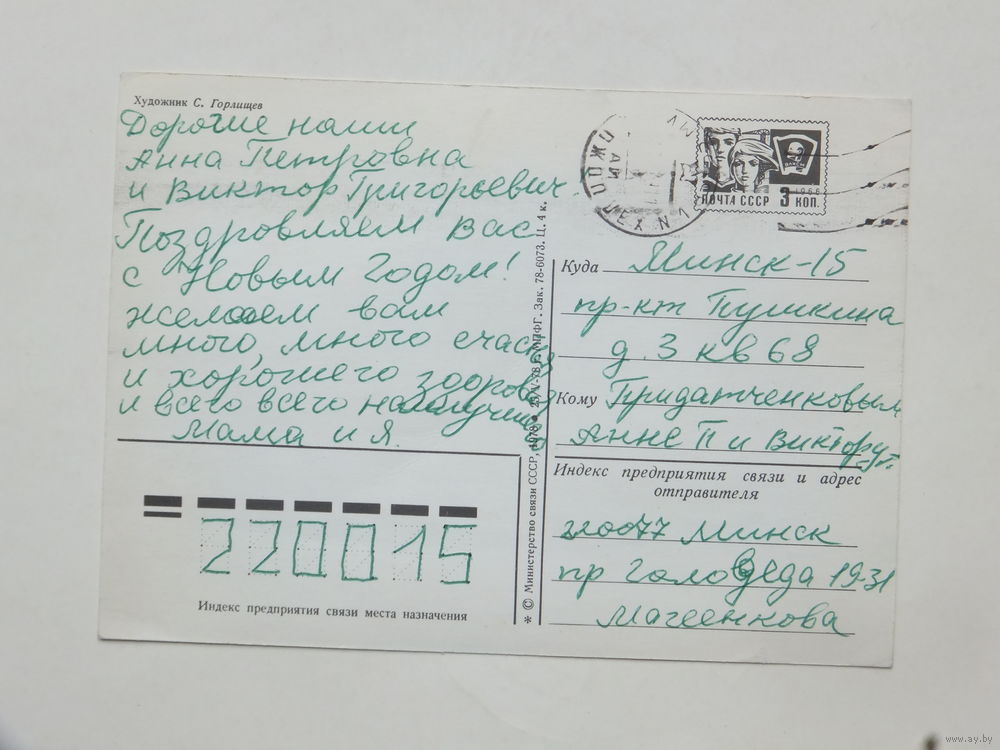 Художник С. Горлищев
Дорогие наши
Анна Петровна
и Виктор Григорьевич.
Поздровляем Вас
с Новым Годом!
желаем вам
много, много счастья
и хорошего здоровья
и всего всего наилучшего
Мама и Я.
220015
Индекс предприятия связи места назначения
* © Министерство связи СССР, 1978 Зак. 78-6073. Ц. 4 к.
ПОЧТА СССР 3 КОП.
1966
ВЛКСМ
Куда Минск-15
пр-кт Пушкина
д. 3 кв 68
Кому Придатченковым
Анне П и Виктору Г.
Индекс предприятия связи и адрес
отправителя
220077 Минск
пр Голодеда 19-31
Магеенкова
www.ay.by